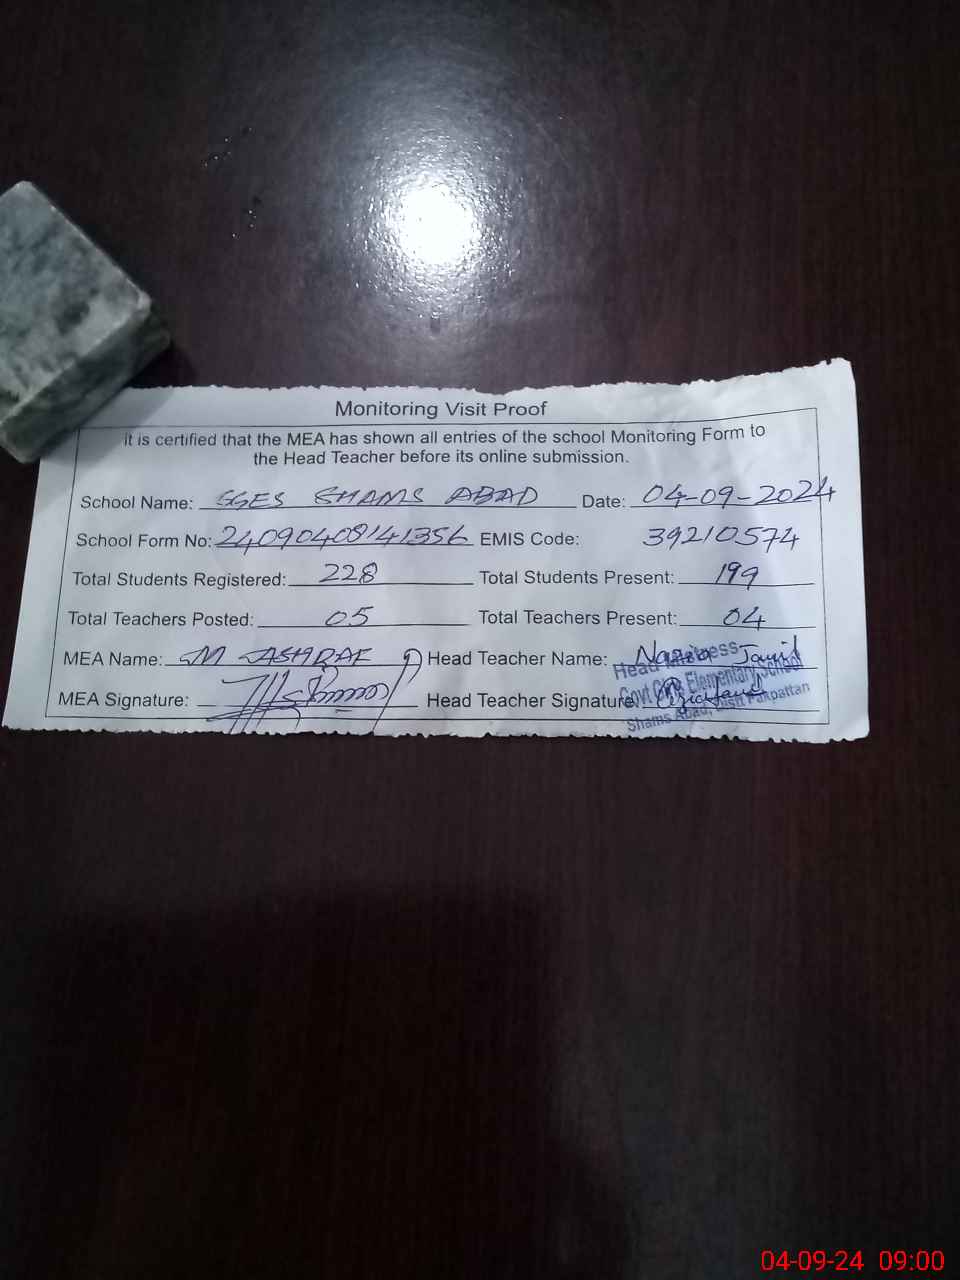 Monitoring Visit Proof
it is certified that the MEA has shown all entries of the school Monitoring Form to
the Head Teacher before its online submission.
School Name: GGES SHAMS ABAD Date: 04-09-2024
School Form No: 24090408141356 EMIS Code: 39210574
Total Students Registered: 228 Total Students Present: 199
Total Teachers Posted: 05 Total Teachers Present: 04
MEA Name: M ASHRAF Head Teacher Name:
Headmistress
MEA Signature: Head Teacher Signature:
Govt Girls Elementary School
Shams Abad, Distt Pakpattan
04-09-24 09:00